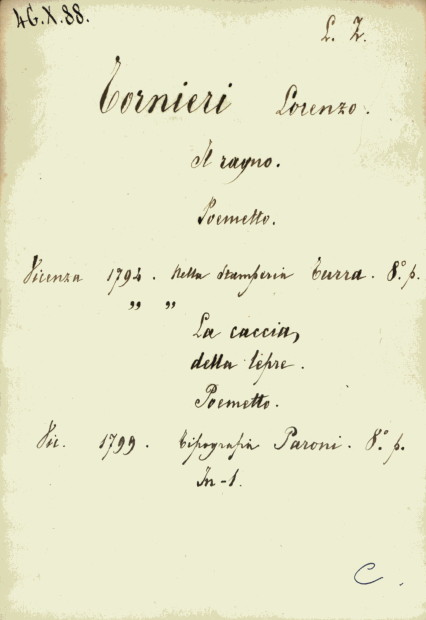 46.X.88.
L. Z.
Tornieri Lorenzo.
Il ragno.
Poemetto.
Vicenza 1794. Nella stamperia Turra. 8.° p.
" "
La caccia,
della lepre.
Poemetto.
Vic. 1799. Tipografia Paroni. 8.° p.
In-1.
C.